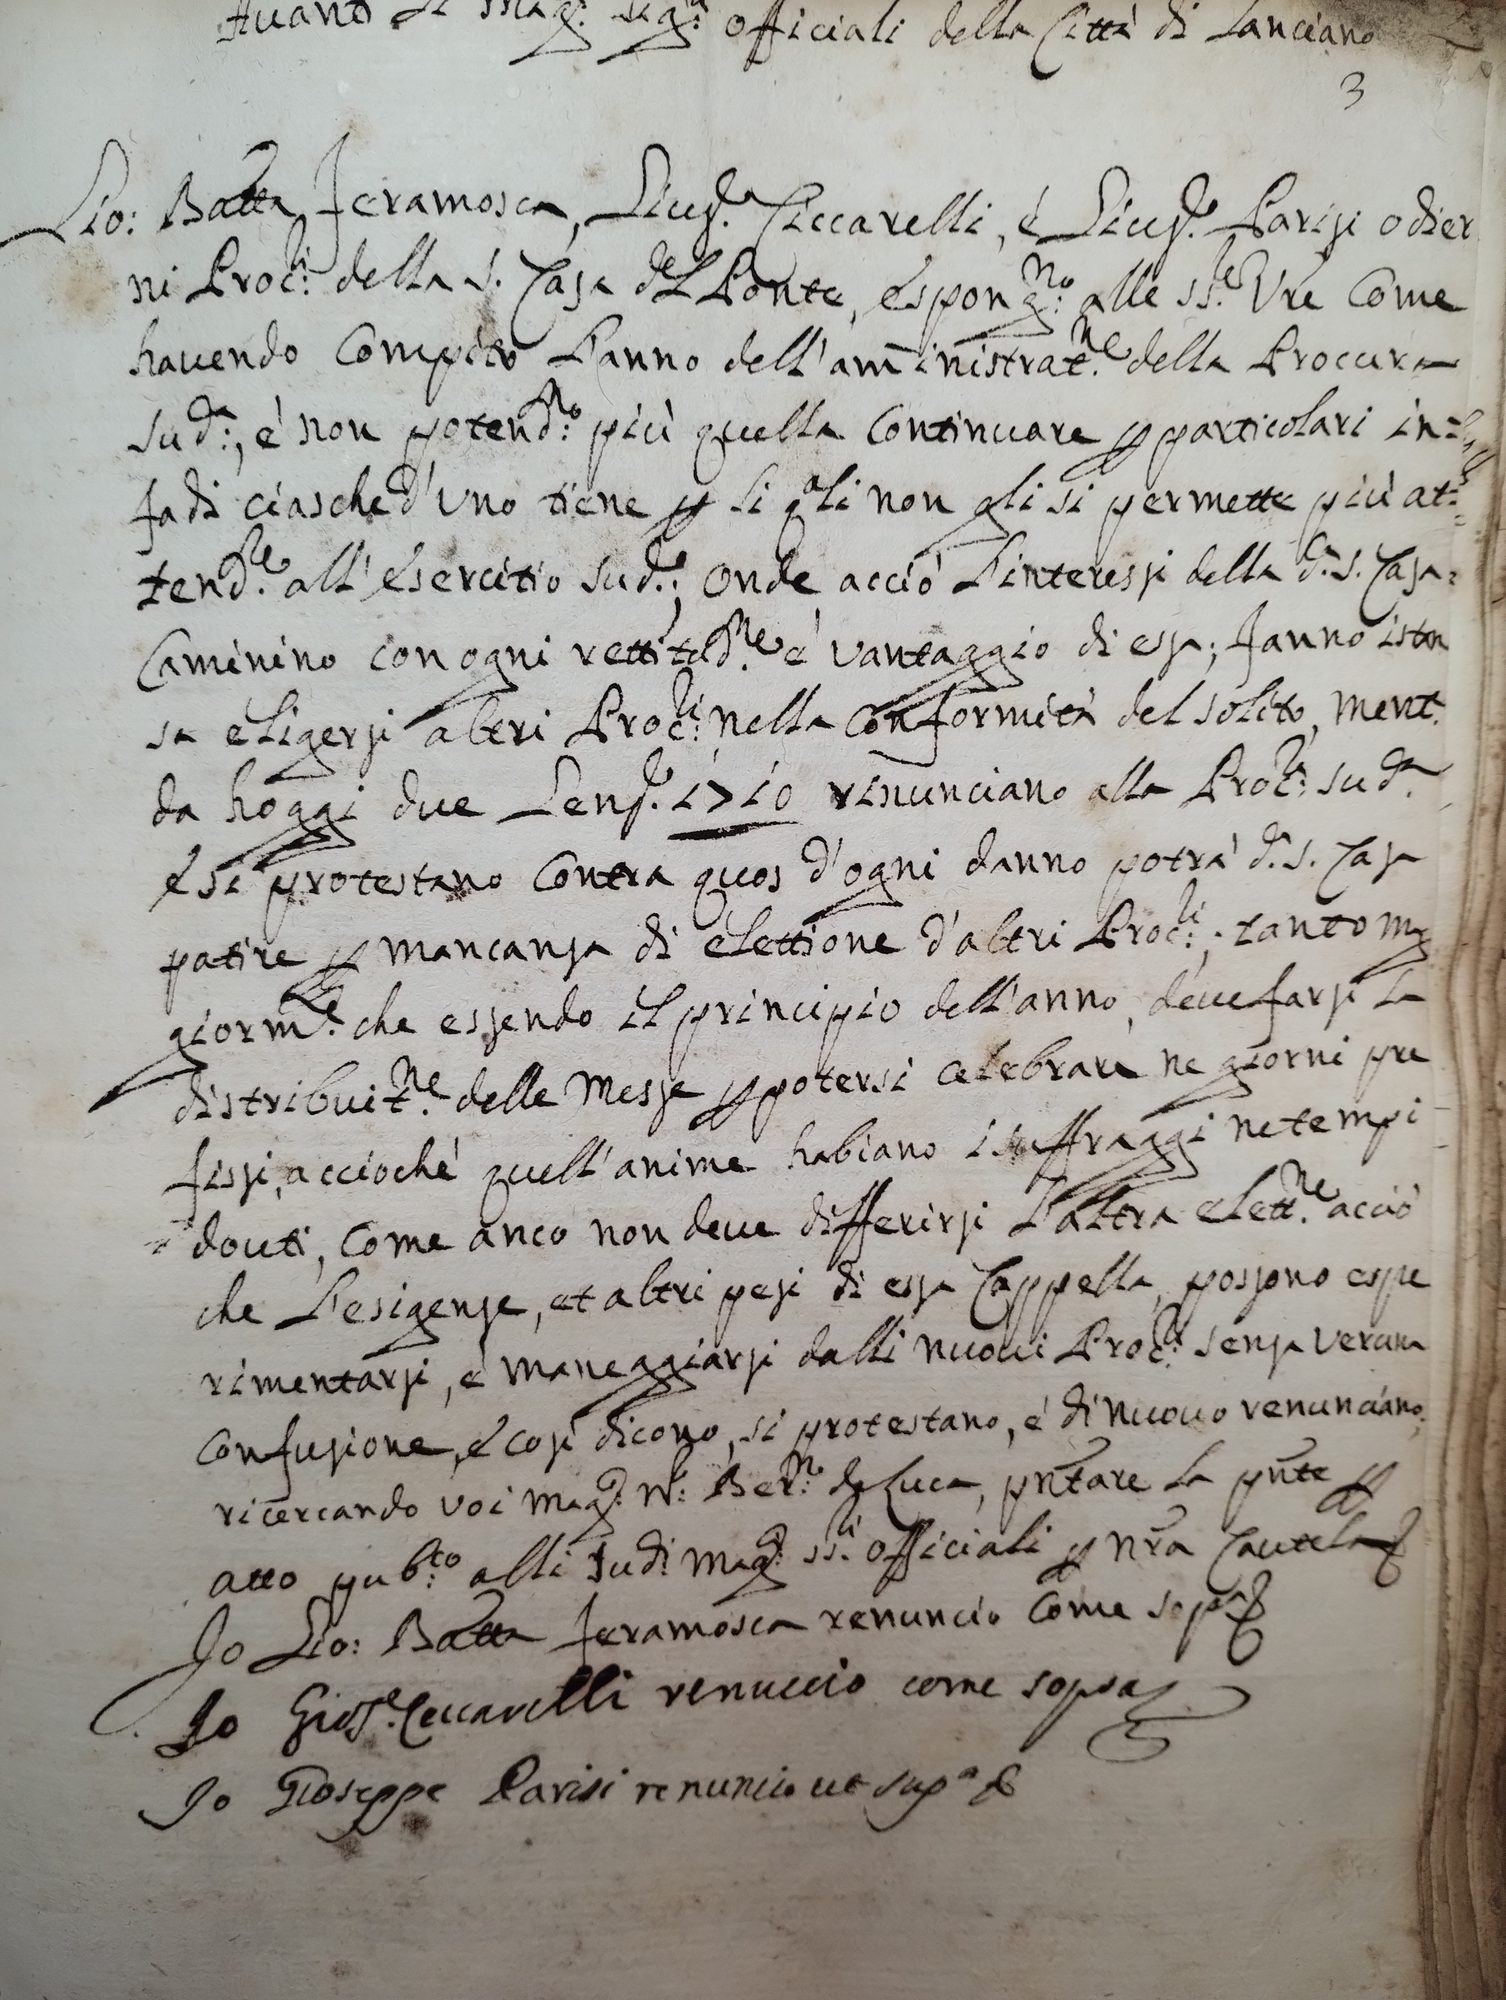 Auanti li Mag: Sig:ri officiali della Città di Lanciano
3
Gio: Batta Feramosca, Gius.e Ciccarelli, é Gius.e Parisi odier
ni Proc:ri della S. Casa del Ponte, espong:no alle SS.rie Vre Come
hauendo Compito l'anno dell'amministrat.ne della Procura
sud:a, é non potend:no più quella Continuare p particolari in=
fadi ciasched'uno tiene p li q.ali non gli si permette più at=
tend.re all'esercitio sud.o; onde acciò l'interessi della d.a S. Casa
Caminino con ogni rettitud.ne é vantaggio di essa; fanno istan
sa eligersi altri Proc:ri nella Conformità del solito, ment.
da hoggi due Gen.o 1710 rinunciano alla Proc:a sud.a
é si protestano Contra quos d'ogni danno potrà d.a S. Casa
patire p mancansa di elettione d'altri Proc:ri; tanto mag
giorm.te che essendo il principio dell'anno, deue farsi la
distribuit.ne delle Messe p potersi celebrare ne giorni pre
fissi, acciochè quell'anime habiano i suffraggi ne tempi
douti, Come anco non deue differirsi l'altra elett.ne acciò
che l'esigense, et altri pesi di essa Cappella, possono espe
rimentarsi, é maneggiarsi dalli nuoui Proc:ri sensa veruna
Confusione, é così dicono, si protestano, é di nuouo renunciano,
ricercando voi Mag:co N:r Ber:no de Luca, pntare la pnte p
atto pub:co alli sudi Mag:ci SS:ri officiali p nra Cautela
Io Gio: Batta Feramosca renuncio Come sopra
Io Gios.e Ceccarelli renuccio come sopra
Io Gioseppe Parisi renuncio ut sup.a